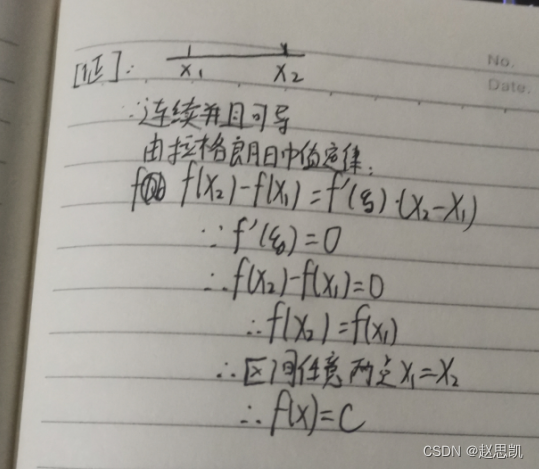 No.
Date.
[证]:
x₁ x₂
∵连续并且可导
由拉格朗日中值定律:
f(x₂)-f(x₁)=f'(ξ)·(x₂-x₁)
∵f'(ξ)=0
∴f(x₂)-f(x₁)=0
∴f(x₂)=f(x₁)
∴区间任意两点x₁=x₂
∴f(x)=C
CSDN @赵思凯